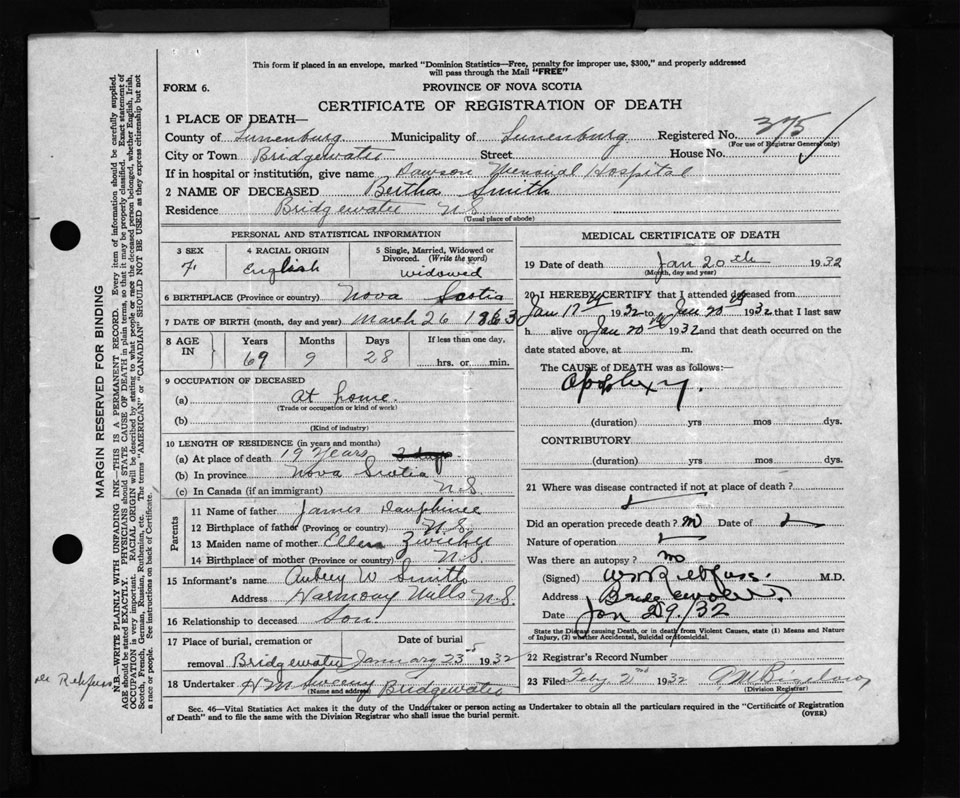 This form if placed in an envelope, marked "Dominion Statistics—Free, penalty for improper use, $300," and properly addressed
will pass through the Mail "FREE"
FORM 6.
PROVINCE OF NOVA SCOTIA
CERTIFICATE OF REGISTRATION OF DEATH
1 PLACE OF DEATH—
County of Lunenburg Municipality of Lunenburg Registered No. 375
(For use of Registrar General only)
City or Town Bridgewater Street House No.
If in hospital or institution, give name Dawson Memorial Hospital
2 NAME OF DECEASED Bertha Smith
Residence Bridgewater N.S.
(Usual place of abode)
PERSONAL AND STATISTICAL INFORMATION
3 SEX 4 RACIAL ORIGIN 5 Single, Married, Widowed or
Divorced. (Write the word)
F English widowed
6 BIRTHPLACE (Province or country) Nova Scotia
7 DATE OF BIRTH (month, day and year) March 26 1863
8 AGE IN Years Months Days If less than one day,
69 9 28 hrs. or min.
9 OCCUPATION OF DECEASED
(a) At home.
(Trade or occupation or kind of work)
(b)
(Kind of industry)
10 LENGTH OF RESIDENCE (in years and months)
(a) At place of death 19 Years
(b) In province Nova Scotia
(c) In Canada (if an immigrant) N.S.
Parents
11 Name of father James Dauphinee
12 Birthplace of father (Province or country) N.S.
13 Maiden name of mother Ellen Zwicker
14 Birthplace of mother (Province or country) N.S.
15 Informant's name Aubrey W Smith
Address Harmony Mills N.S.
16 Relationship to deceased Son
17 Place of burial, cremation or Date of burial
removal Bridgewater January 23rd 1932
18 Undertaker H M Bridgewater
(Name and address)
MEDICAL CERTIFICATE OF DEATH
19 Date of death Jan 20th 1932
(Month, day and year)
20 I HEREBY CERTIFY that I attended deceased from
Jan 17th 1932 to Jan 20th 1932 that I last saw
h alive on Jan 20th 1932 and that death occurred on the
date stated above, at m.
The CAUSE of DEATH was as follows:—
Apoplexy.
(duration) yrs mos dys.
CONTRIBUTORY
(duration) yrs mos dys.
21 Where was disease contracted if not at place of death?
Did an operation precede death? no Date of
Nature of operation
Was there an autopsy? no
(Signed) Rehfuss. M.D.
Address Bridgewater
Date Jan 29/32
State the Disease causing Death, or in death from Violent Causes, state (1) Means and Nature
of Injury, (2) whether Accidental, Suicidal or Homicidal.
22 Registrar's Record Number
23 Filed Feby 2nd 1932
(Division Registrar)
Sec. 46—Vital Statistics Act makes it the duty of the Undertaker or person acting as Undertaker to obtain all the particulars required in the "Certificate of Registration
of Death" and to file the same with the Division Registrar who shall issue the burial permit.
(OVER)
MARGIN RESERVED FOR BINDING
N.B.—WRITE PLAINLY WITH UNFADING INK—THIS IS A PERMANENT RECORD. Every item of information should be carefully supplied.
AGE should be stated EXACTLY. PHYSICIANS should STATE CAUSE OF DEATH in plain terms, so that it may be properly classified. Exact statement of
OCCUPATION is very important. RACIAL ORIGIN will be described by stating to what people or race the deceased person belonged, whether English, Irish,
Scotch, French, German, Russian, Ruthenian, etc. The terms "AMERICAN" or "CANADIAN" SHOULD NOT BE USED as they express citizenship but not
a race or people. See instructions on back of Certificate.
Rehfuss